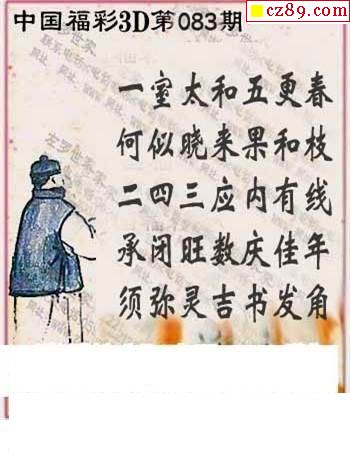 cz89.com
中国福彩3D第083期
一室太和五更春
何似晓来果和枝
二四三应内有线
承闭旺数庆佳年
须弥灵吉书发角